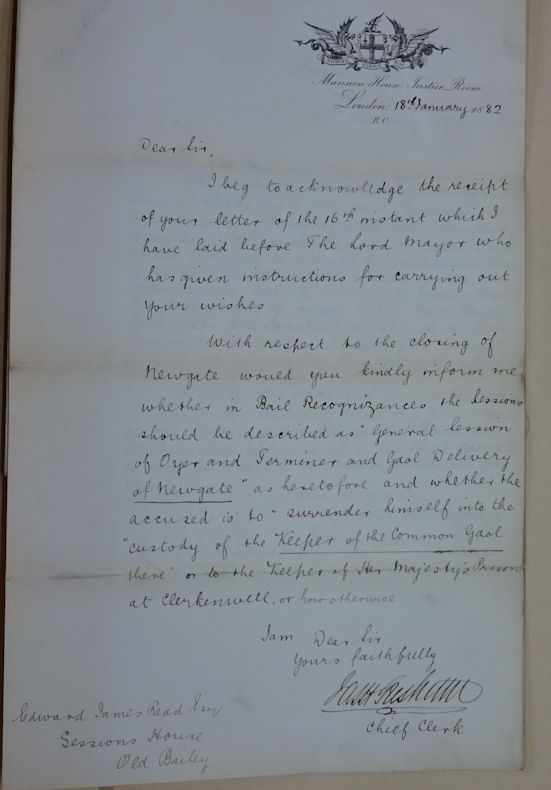 DOMINE DIRIGE NOS
Mansion House, Justice Room.
London 18th January 1882
E.C.
Dear Sir,
I beg to acknowledge the receipt
of your letter of the 16th instant which I
have laid before The Lord Mayor who
has given instructions for carrying out
your wishes
With respect to the closing of
Newgate would you kindly inform me
whether in Bail Recognizances the Sessions
should be described as "General Session
of Oyer and Terminer and Gaol Delivery
of Newgate" as heretofore and whether the
accused is to "surrender himself into the
"custody of the Keeper of the Common Gaol
there" or to the Keeper of Her Majesty's Prison
at Clerkenwell, or how otherwise.
I am Dear Sir
Yours faithfully
Chief Clerk
Edward James Read Esq
Sessions House
Old Bailey